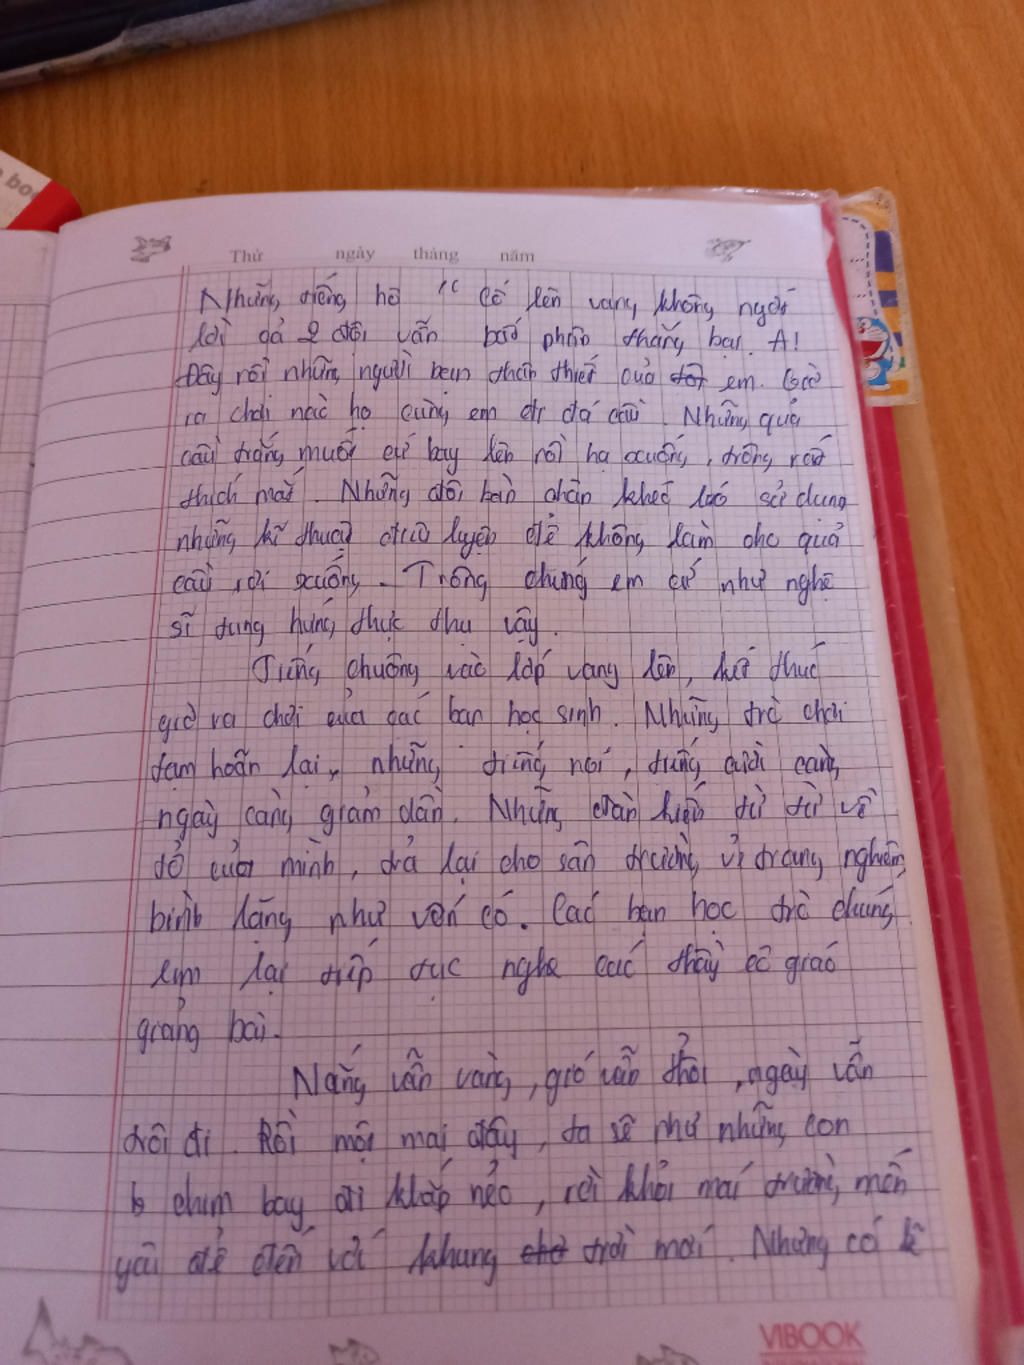 Thứ ngày tháng năm
Những tiếng hô "cố lên vang không ngớt
lời cả 2 đội vẫn bất phân thắng bại. A!
Đây rồi những người bạn thân thiết của em. Giờ
ra chơi nào họ cùng em đi đá cầu. Những quả
cầu trắng muốt cứ bay lên rồi hạ xuống, trông rất
thích mắt. Những đôi bàn chân khéo léo sử dụng
những kĩ thuật điêu luyện để không làm cho quả
cầu rơi xuống. Trông chúng em cứ như nghệ
sĩ tung hứng thực thụ vậy.
Tiếng chuông vào lớp vang lên, kết thúc
giờ ra chơi của các bạn học sinh. Những trò chơi
tạm hoãn lại, những tiếng nói, tiếng cười càng
ngày càng giảm dần. Những đàn kiến từ từ về
tổ của mình, trả lại cho sân trường vẻ trang nghiêm
bình lặng như vốn có. Các bạn học trò chúng
em lại tiếp tục nghe các thầy cô giáo
giảng bài.
Nắng vẫn vàng, gió vẫn thổi, ngày vẫn
trôi đi. Rồi một mai đây, ta sẽ như những con
chim bay đi khắp nẻo, rời khỏi mái trường mến
yêu để đến với khung trời mới. Nhưng có lẽ
VIBOOK